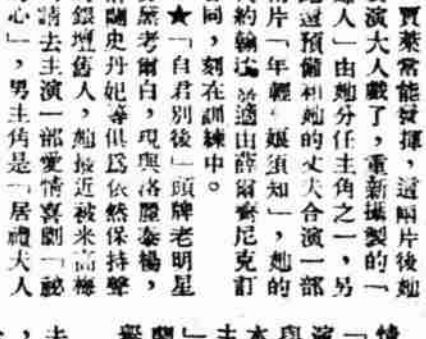 賈萊常能發揮,這兩片後她
演大人戲了,重新攝製的「
婦人」由她分任主角之一,另
她還預備和她的丈夫合演一部
片「年輕 娘須知」,她的
約翰 適由薛爾齊尼克訂
同,刻在訓練中。
★「自君別後」頭牌老明星
黛考爾白,現與洛麗泰楊,
蘭史丹妃等俱爲依然保持聲
銀壇舊人,她最近被米高梅
請去主演一部愛情喜劇「祕
心」,男主角是「居禮夫人